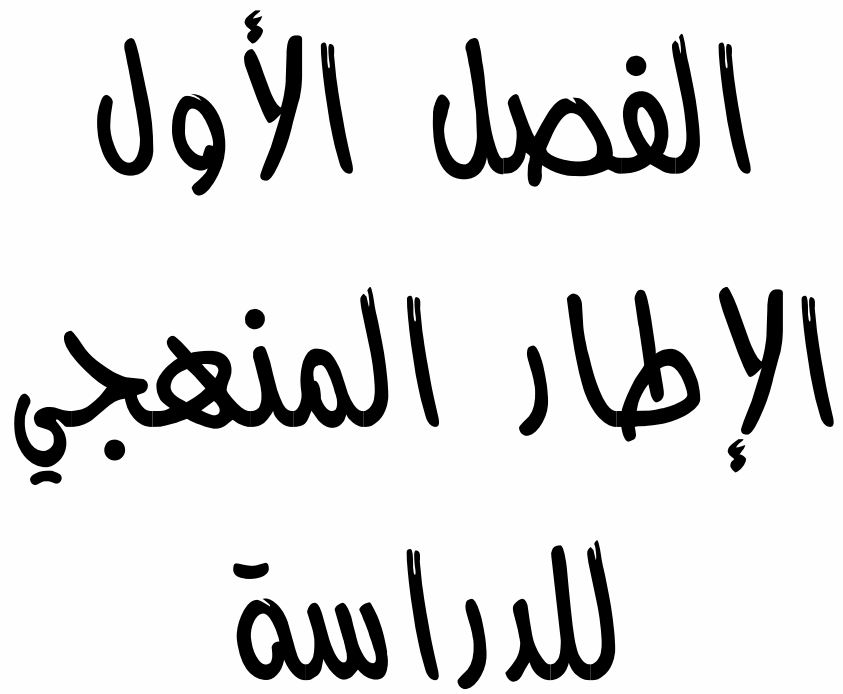 الفصل الأول
الإطار المنهجي
للدراسة